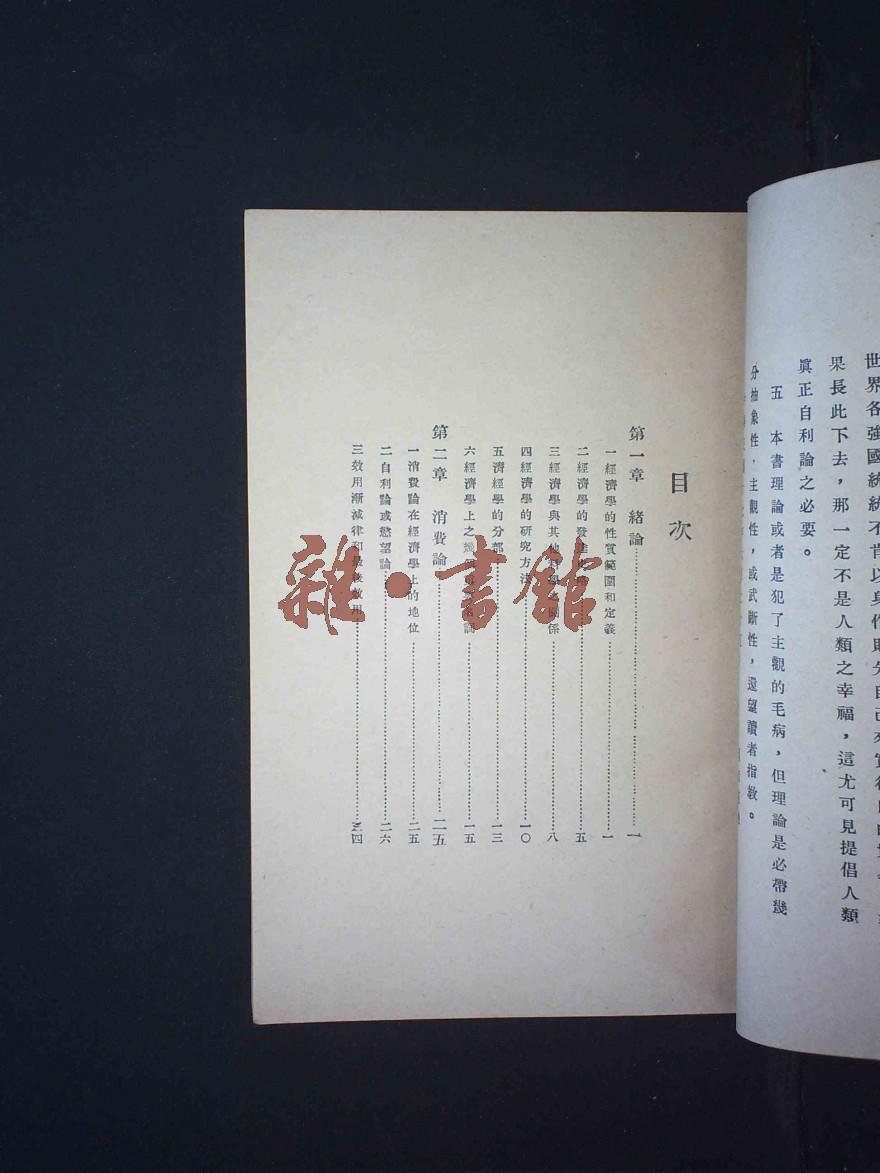 世界各強國統統不肯以身作則
果長此下去，那一定不是人類之幸福，這尤可見提倡人類
眞正自利論之必要。
五 本書理論或者是犯了主觀的毛病，但理論是必帶幾
分抽象性，主觀性，或武斷性，還望讀者指教。
目次
第一章 緒論 一
一經濟學的性質範圍和定義 一
二經濟學的發達 五
三經濟學與其他科學之關係 八
四經濟學的研究方法 一〇
五濟經學的分部 一三
六經濟學上之幾個 名詞 一五
第二章 消費論 二五
一消費論在經濟學上的地位 二五
二自利論或慾望論 二六
三效用漸減律和最後效用 三四
雜·書館